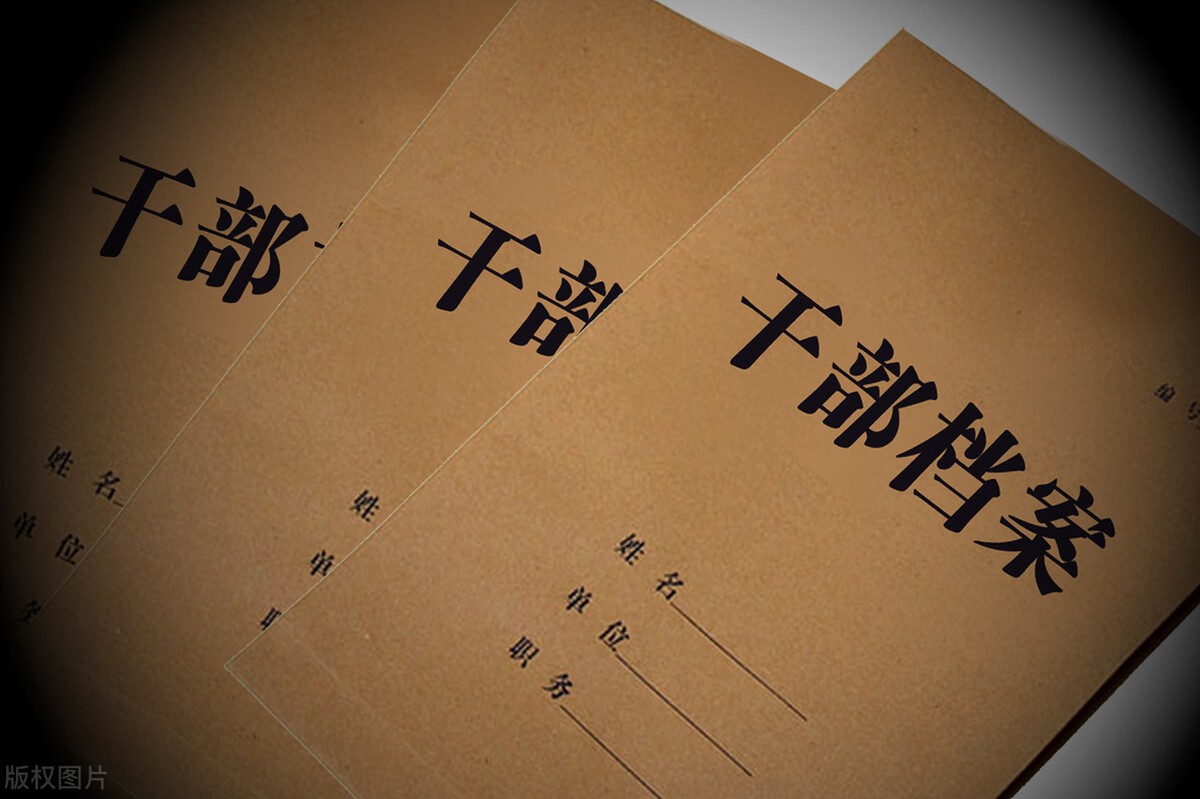 干部
姓名
单位
务
干部
姓
单
职
干部档案
编号
姓名
单位
职务
版权图片